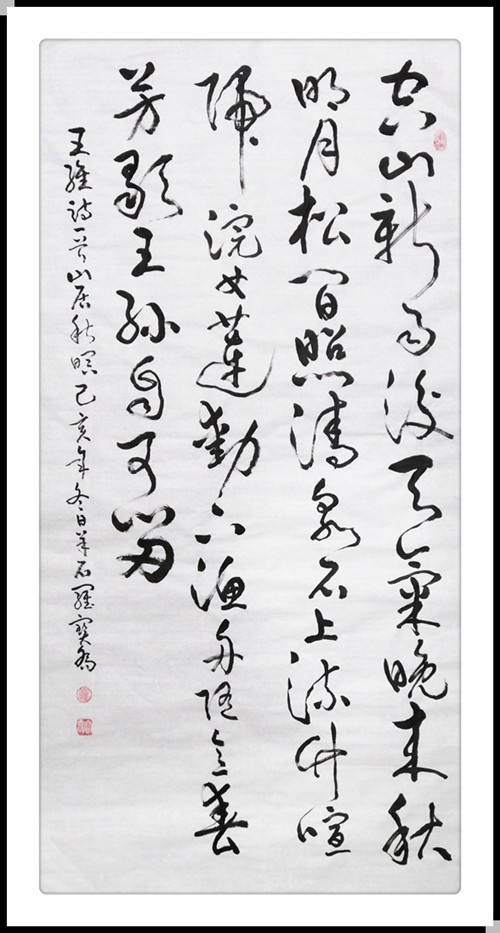 空山新雨後天氣晚来秋
明月松間照清泉石上流竹喧
歸浣女蓮動下漁舟随意春
芳歇王孫自可留
王維詩一首山居秋暝己亥年冬日羊石羅寶